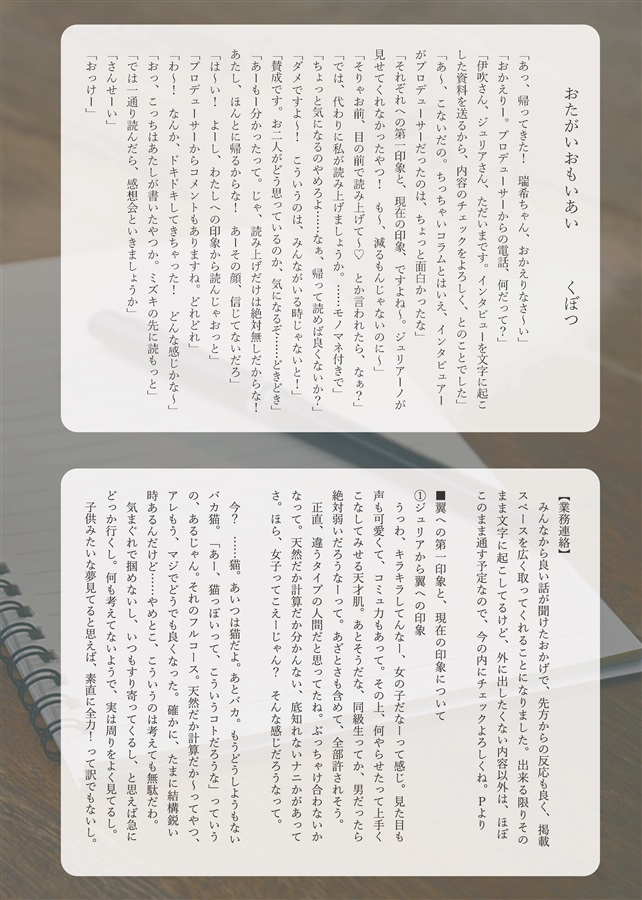 おたがいおもいあい　　くぼつ
「あっ、帰ってきた！　瑞希ちゃん、おかえりなさ～い」
「おかえりー。プロデューサーからの電話、何だって？」
「伊吹さん、ジュリアさん、ただいまです。インタビューを文字に起こ
した資料を送るから、内容のチェックをよろしく、とのことでした」
「あ～、こないだの。ちっちゃいコラムとはいえ、インタビュアー
がプロデューサーだったのは、ちょっと面白かったな」
「それぞれへの第一印象と、現在の印象、ですよね～。ジュリアーノが
見せてくれなかったやつ！　も～、減るもんじゃないのに～」
「そりゃお前、目の前で読み上げて～♡　とか言われたら、なぁ？」
「では、代わりに私が読み上げましょうか。……モノマネ付きで」
「ちょっと気になるのやめろよ……なぁ、帰って読めば良くないか？」
「ダメですよ～！　こういうのは、みんながいる時じゃないと！」
「賛成です。お二人がどう思っているのか、気になるぞ……どきどき」
「あーもー分かったって。じゃ、読み上げだけは絶対無しだからな！
あたし、ほんとに帰るからな！　あーその顔、信じてないだろ」
「は～い！　よーし、わたしへの印象から読んじゃおっと」
「プロデューサーからコメントもありますね。どれどれ」
「わ～！　なんか、ドキドキしてきちゃった！　どんな感じかな～」
「おっ、こっちはあたしが書いたやつか。ミズキの先に読もっと」
「では一通り読んだら、感想会といきましょうか」
「さんせーい」
「おっけー」
【業務連絡】
　みんなから良い話が聞けたおかげで、先方からの反応も良く、掲載
スペースを広く取ってくれることになりました。出来る限りその
まま文字に起こしてるけど、外に出したくない内容以外は、ほぼ
このまま通す予定なので、今の内にチェックよろしくね。Pより
■翼への第一印象と、現在の印象について
①ジュリアから翼への印象
　うっわ、キラキラしてんなー、女の子だなーって感じ。見た目も
声も可愛くて、コミュ力もあって。その上、何やらせたって上手く
こなしてみせる天才肌。あとそうだな、同級生ってか、男だったら
絶対弱いだろうなーって。あざとさも含めて、全部許されそう。
　正直、違うタイプの人間だと思ってたね。ぶっちゃけ合わないか
なって。天然だか計算だか分かんない、底知れないナニかがあって
さ。ほら、女子ってこえーじゃん？　そんな感じだろうなって。
　今？　……猫。あいつは猫だよ。あとバカ。もうどうしようもない
バカ猫。「あー、猫っぽいって、こういうコトだろうな」っていう
の、あるじゃん。それのフルコース。天然だか計算だか～ってやつ、
アレもう、マジでどうでも良くなった。確かに、たまに結構鋭い
時あるんだけど……やめとこ、こういうのは考えても無駄だわ。
　気まぐれで掴めないし、いつもすり寄ってくるし、と思えば急に
どっか行くし。何も考えてないようで、実は周りをよく見てるし。
子供みたいな夢見てると思えば、素直に全力！って訳でもないし。